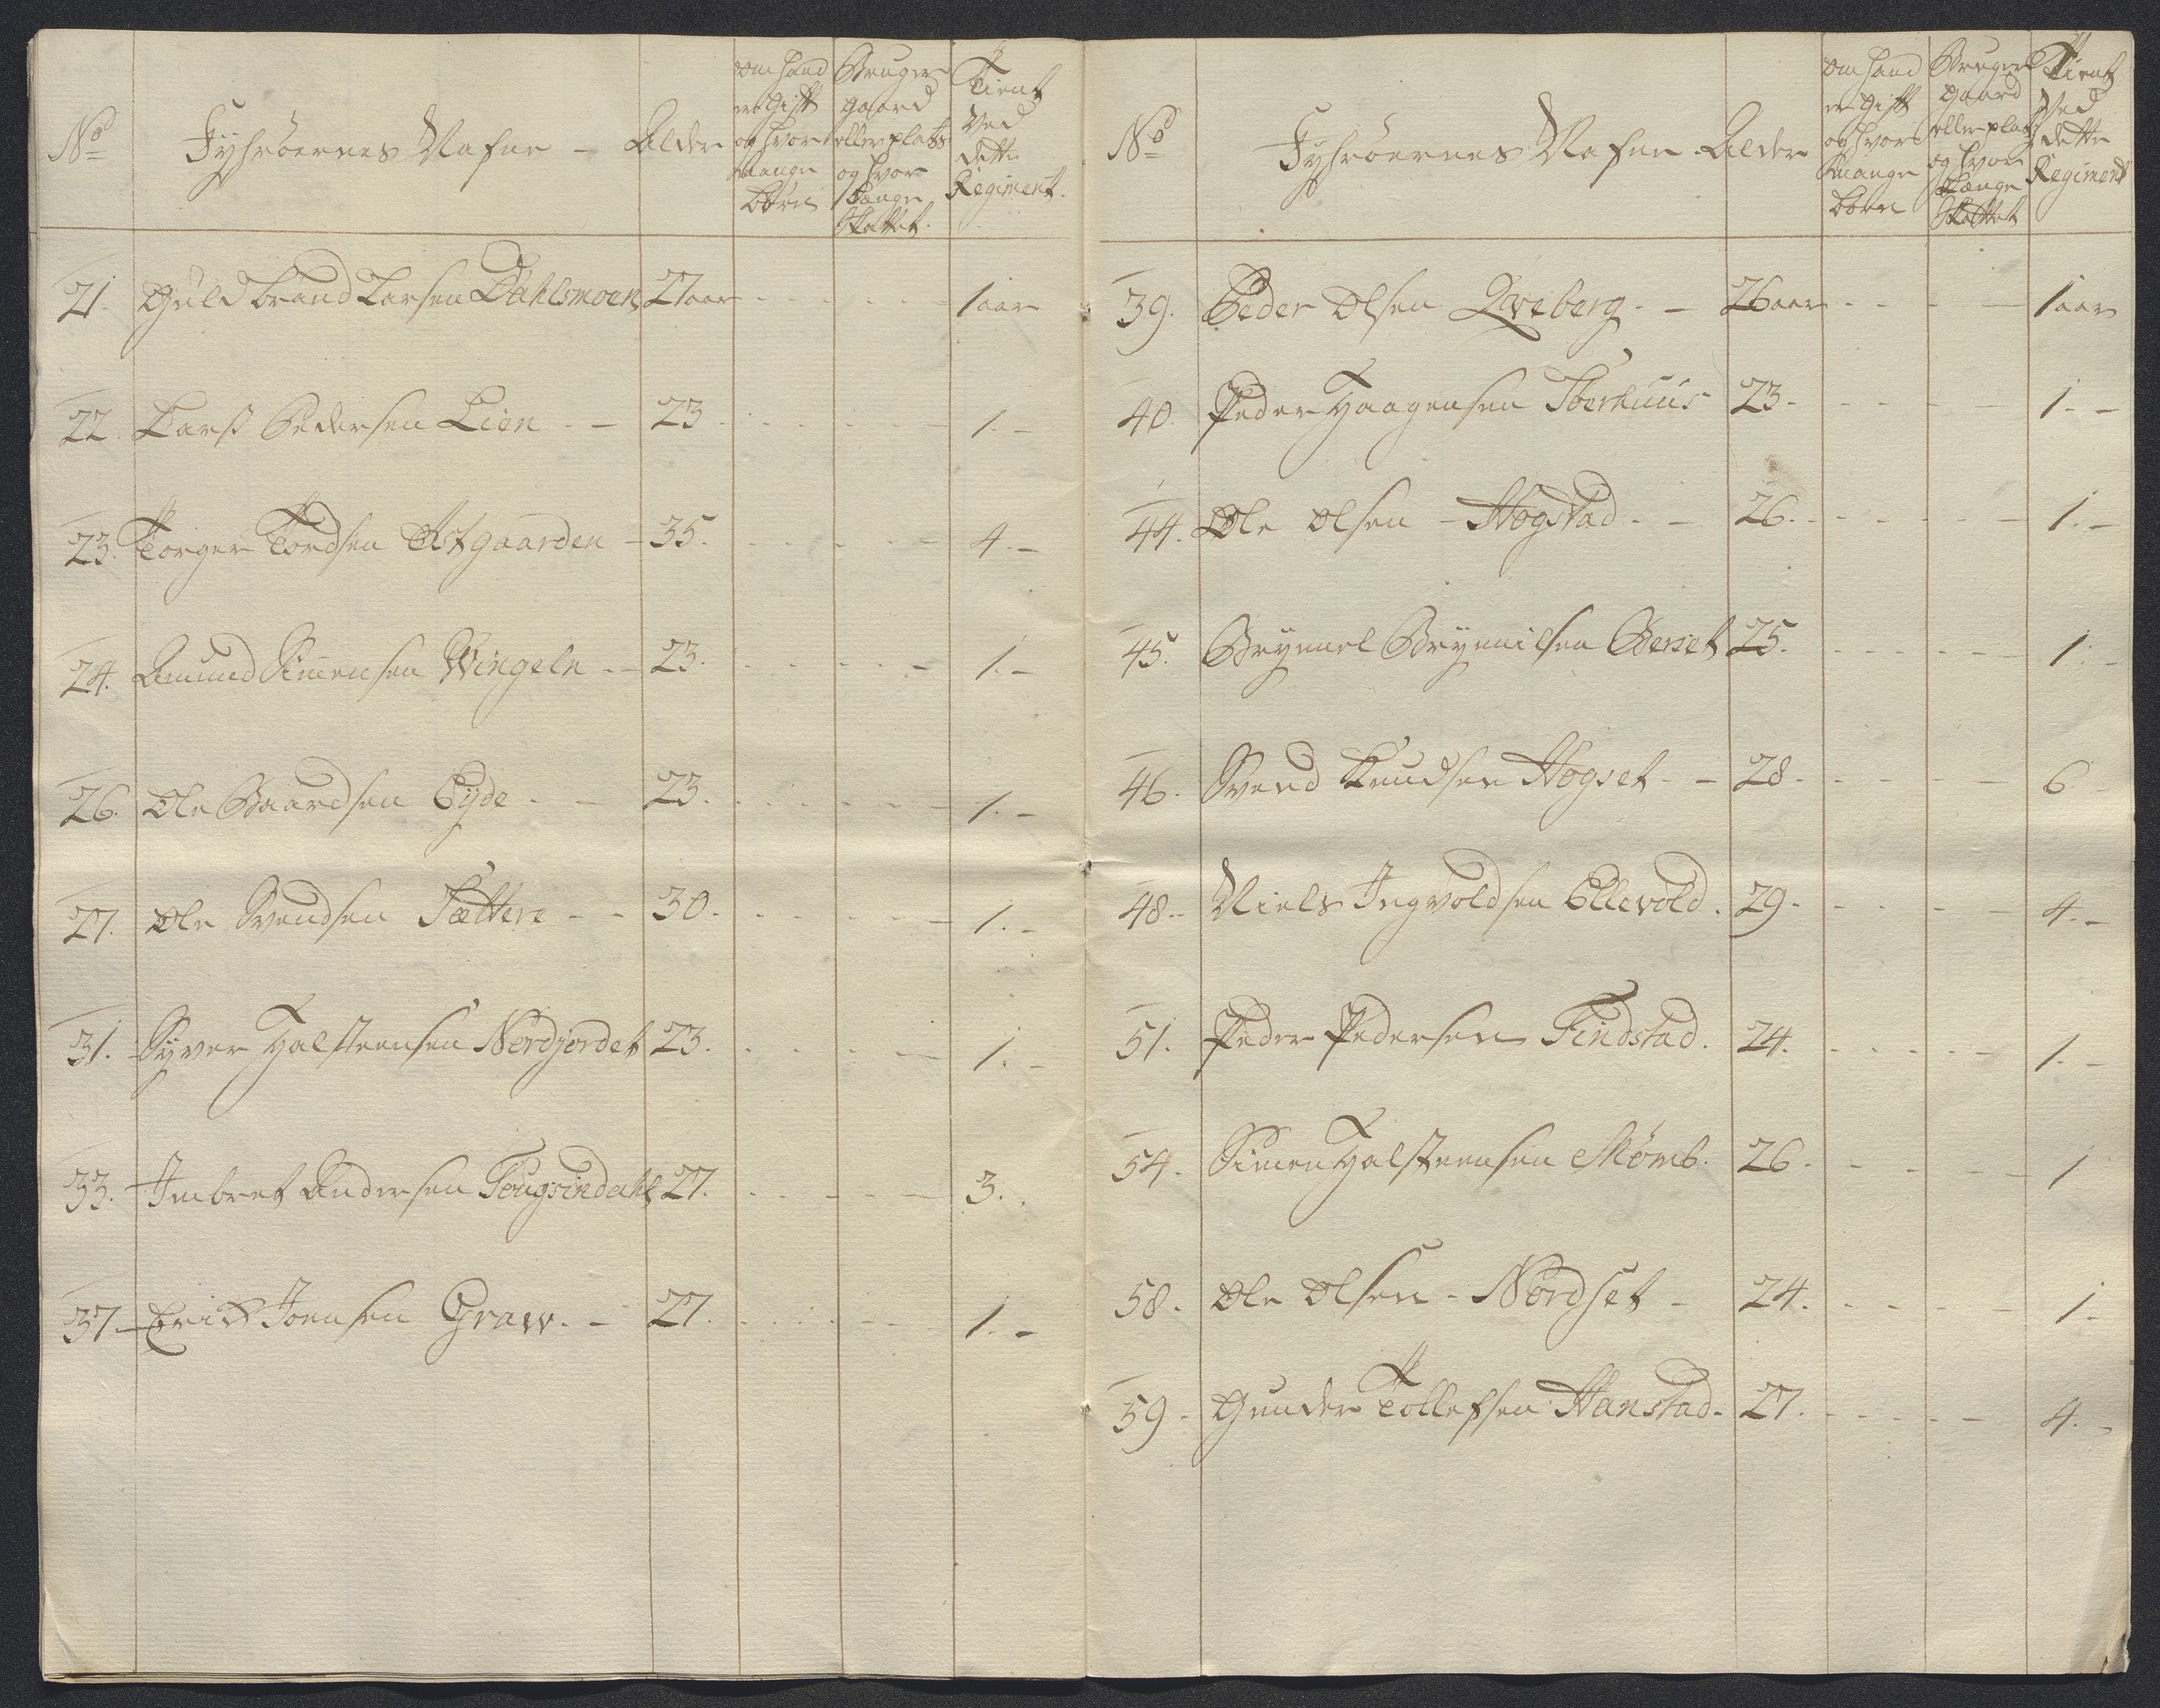 No Fyhrøernes Nafne - Alder om hand er gift og hvor mange børn Bruger gaard eller plats og hvor Længe Skattet. Tient Ved dette Regiment.
21. Guldbrand Larsen Dahlsmoen 27 aar - - - - - - 1 aar
22. Larss Pedersen Lien - - 23 - - - - - 1. -
23. Torger Tordsen Astgaarden - 35. - - - - - 4. -
24. Amund Simensen Wingeln - - 23. - - - - - 1. -
26. Ole Baardsen Eyde - - 23. - - - - - 1. -
27. Ole Svendsen Sættere - - 30. - - - - - 1. -
31. Syver Halsteensen Nordjordet 23. - - - - - 1. -
33. Imbret Andersen Tougsindahl 27. - - - - - 3. .
37 - Erick Joensen Graw. - 27. - - - - - 1. -
No Fyhrøernes Nafne Alder om hand er gift og hvor mange børn Bruger gaard eller plats og hvor Længe Skattet Tient Ved dette Regiment
39. Peder Olsen Qveberg - - 26 aar - - - - 1 aar
40. Peder Haagensen 23 - - - - - 1. -
44. Ole Olsen - Hogstad - - 26. - - - - - 1. -
45. Brynnel Brynnilsen Berset 25. - - - - - 1. -
46. Svend Knudsen Hogset - - 28 - - - - - 6. -
48 - Niels Ingvoldsen Ellevold. 29 - - - - - 4. -
51. Peder Pedersen Findstad. 24. - - - - - 1. -
54. Simen Halsteensen Mømb. 26 - - - - - 1
58. Ole Olsen - Nordset - 24. - - - - - 1 -
59. Gunder Tollefsen Hanstad. 27. - - - - - 4. -